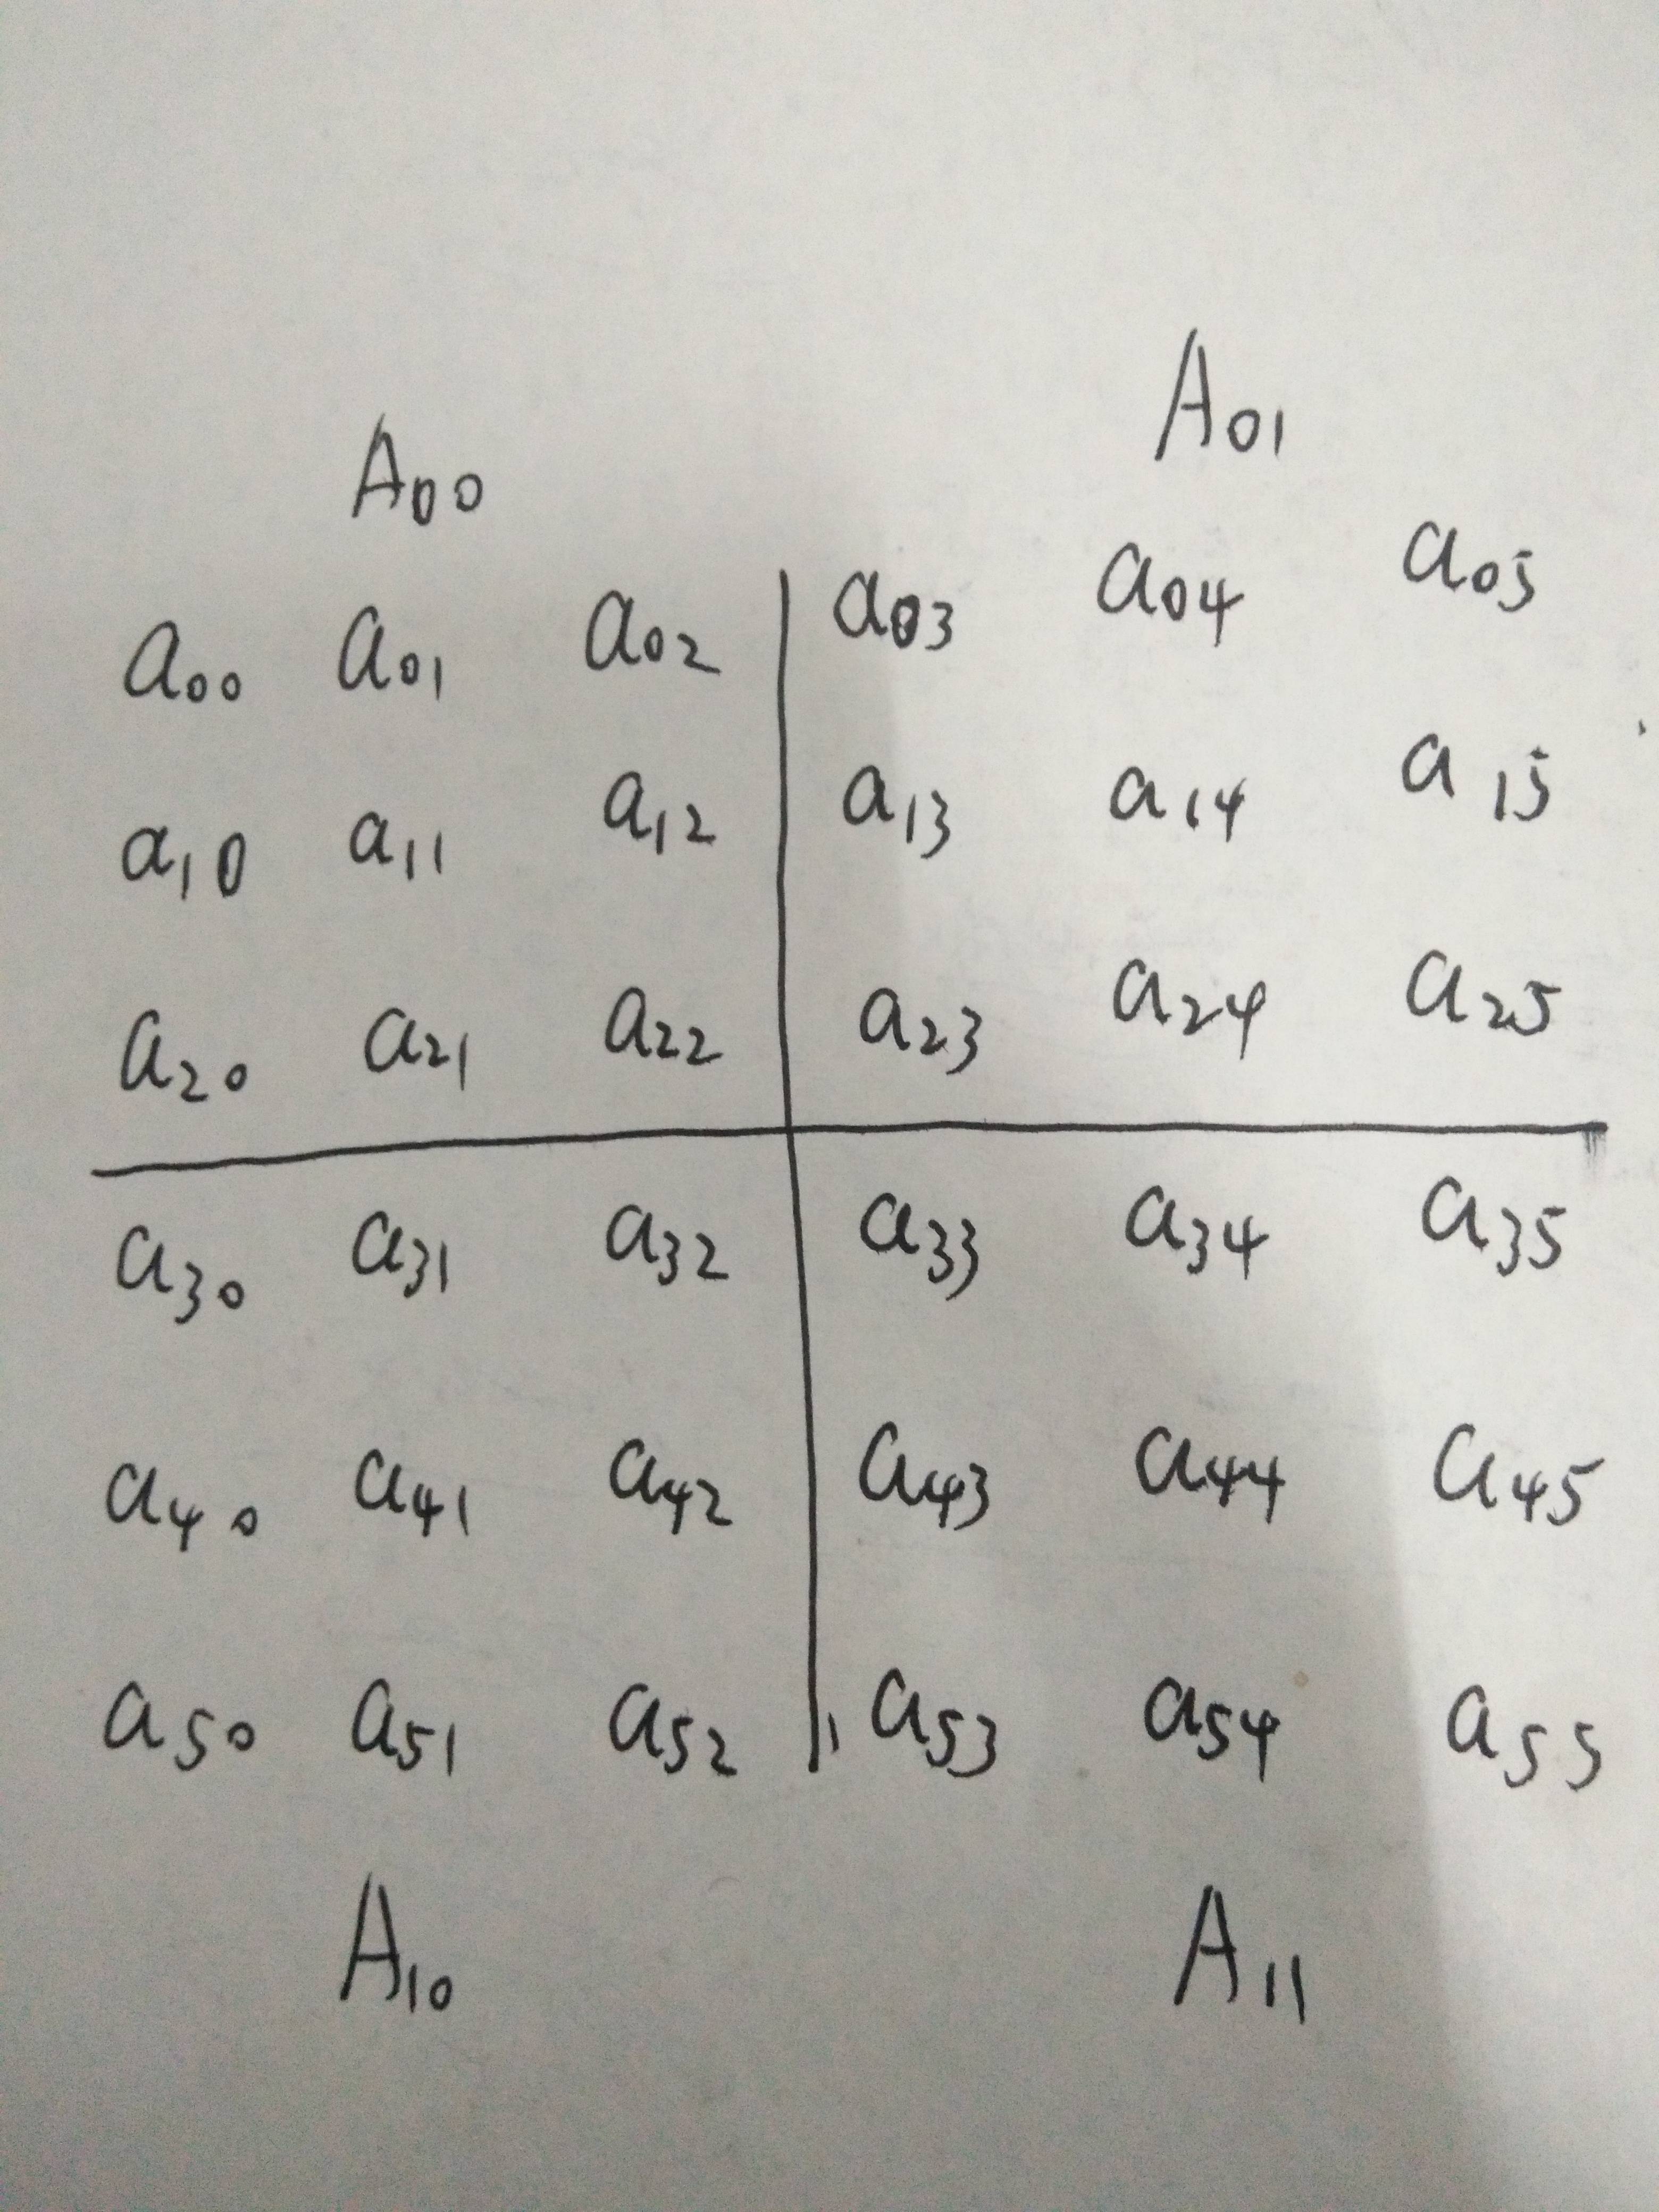 A00 A01
a00 a01 a02 a03 a04 a05
a10 a11 a12 a13 a14 a15
a20 a21 a22 a23 a24 a25
a30 a31 a32 a33 a34 a35
a40 a41 a42 a43 a44 a45
a50 a51 a52 a53 a54 a55
A10 A11